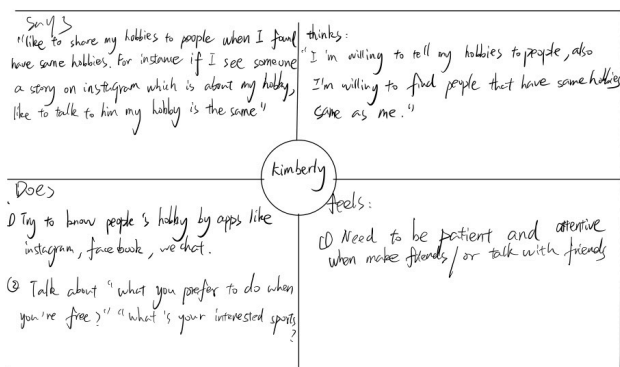 Says
"like to share my hobbies to people when I found
have same hobbies. For instance if I see someone
a story on instagram which is about my hobby,
like to talk to him my hobby is the same"
thinks:
"I'm willing to tell my hobbies to people, also
I'm willing to find people that have same hobbies
same as me."
kimberly
Does
① Try to know people's hobby by apps like
instagram, facebook, wechat.
② Talk about "what you prefer to do when
you're free?" "what's your interested sports
?
feels:
① Need to be patient and attentive
when make friends/or talk with friends